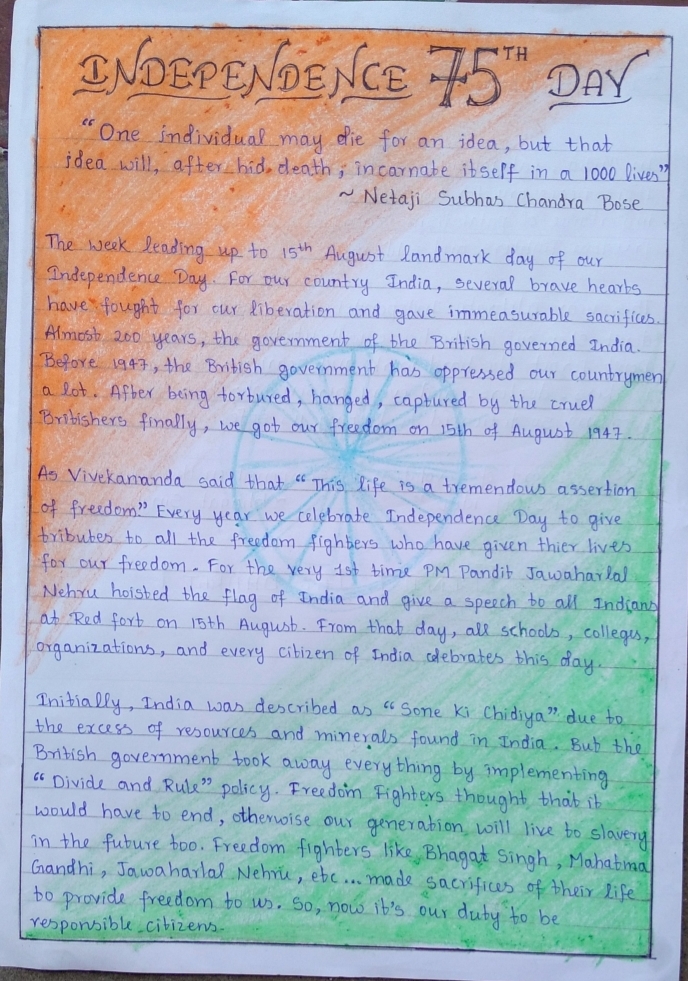 INDEPENDENCE 75TH DAY
"One individual may die for an idea, but that
idea will, after hid death, incarnate itself in a 1000 lives"
~ Netaji Subhas Chandra Bose
The week leading up to 15th August landmark day of our
Independence Day. For our country India, several brave hearts
have fought for our liberation and gave immeasurable sacrifices.
Almost 200 years, the government of the British governed India.
Before 1947, the British government has oppressed our countrymen
a lot. After being tortured, hanged, captured by the cruel
Britishers finally, we got our freedom on 15th of August 1947.
As Vivekananda said that "This life is a tremendous assertion
of freedom" Every year we celebrate Independence Day to give
tributes to all the freedom fighters who have given thier lives
for our freedom. For the very 1st time PM Pandit Jawaharlal
Nehru hoisted the flag of India and give a speech to all Indians
at Red fort on 15th August. From that day, all schools, colleges,
organizations, and every citizen of India clebrates this day.
Initially, India was described as "Sone Ki Chidiya" due to
the excess of resources and minerals found in India. But the
British government took away everything by implementing
"Divide and Rule" policy. Freedom Fighters thought that it
would have to end, otherwise our generation will live to slavery
in the future too. Freedom fighters like Bhagat Singh, Mahatma
Gandhi, Jawaharlal Nehru, etc... made sacrifices of their life
to provide freedom to us. So, now it's our duty to be
responsible citizens.